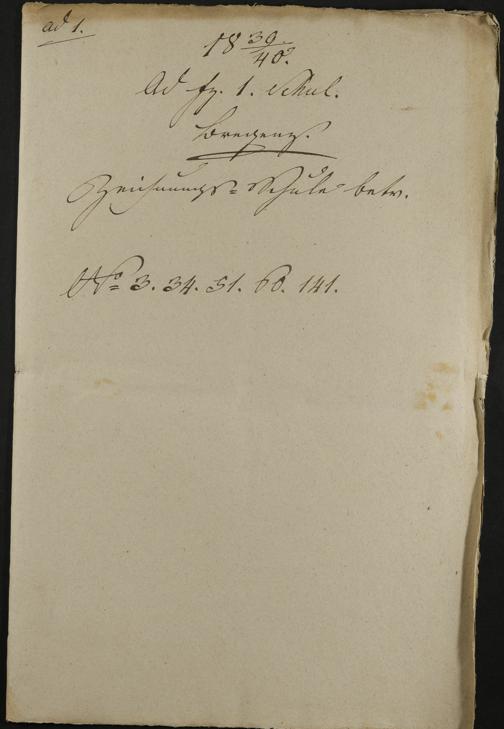 ad 1.
18 39/40.
Ad fz. 1. Schul.
Bregenz.
Zeichnungs=Schule betr.
No 3. 34. 51. 60. 141.